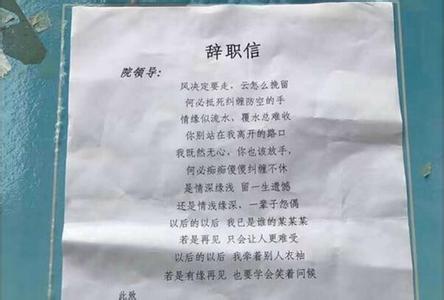 辞职信
院领导：
风决定要走，云怎么挽留
何必抵死纠缠防空的手
情缘似流水、覆水总难收
你别站在我离开的路口
我既然无心，你也该放手，
何必痴痴傻傻纠缠不休
是情深缘浅 留一生遗憾
还是情浅缘深、一辈子怨偶
以后的以后 我已是谁的某某某
若是再见 只会让人更难受
以后的以后 我牵着别人衣袖
若是有缘再见 也要学会笑着问候
此致